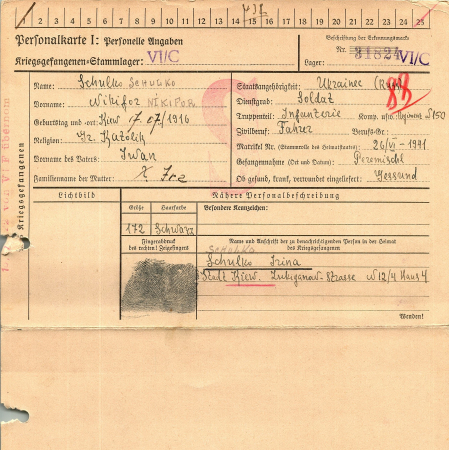 1 2 3 4 5 6 7 8 9 10 11 12 13 14 15 16 17 18 19 20 21 22 23 24 25
Personalkarte I: Personelle Angaben
Kriegsgefangenen-Stammlager: VI/C
Beschriftung der Erkennungsmarke
Nr. 31824
Lager: VI/C
Name: Schulko SCHULKO
Vorname: Nikifor NIKIFOR
Geburtstag und -ort: Kiew 17/07/1916
Religion: Gr. Katolik
Vorname des Vaters: Iwan
Familienname der Mutter:
Staatsangehörigkeit: Ukrainer
Dienstgrad: Soldat
Truppenteil: Infanterie Komp. usw.: Regiment 150
Zivilberuf: Fahrer Berufs-Gr.:
Matrikel Nr. (Stammrolle des Heimatstaates): 26/VI-1941
Gefangennahme (Ort und Datum): Peremischl
Ob gesund, krank, verwundet eingeliefert: Gesund
Lichtbild
Nähere Personalbeschreibung
Größe Haarfarbe Besondere Kennzeichen:
172 Schwarz
Fingerabdruck
des rechten! Zeigefingers
Name und Anschrift der zu benachrichtigenden Person in der Heimat
des Kriegsgefangenen
SCHULKO
Schulko Irina
Stadt Kiew. Strasse Haus 4
Wenden!
Kriegsgefangenen